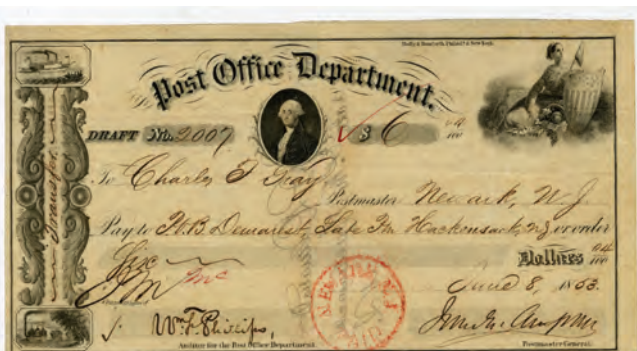 Post Office Department.
DRAFT No. 2007 $ 6 04/100
To Charles T Gray
Postmaster Newark, N.J
Pay to H.B. Demarest, Late P.M. Hackensack, NJ or order
Six
Dollars 04/100
June 8, 1853.
Transfer
Wm F Phillips,
Auditor for the Post Office Department.
Postmaster General.
PAID